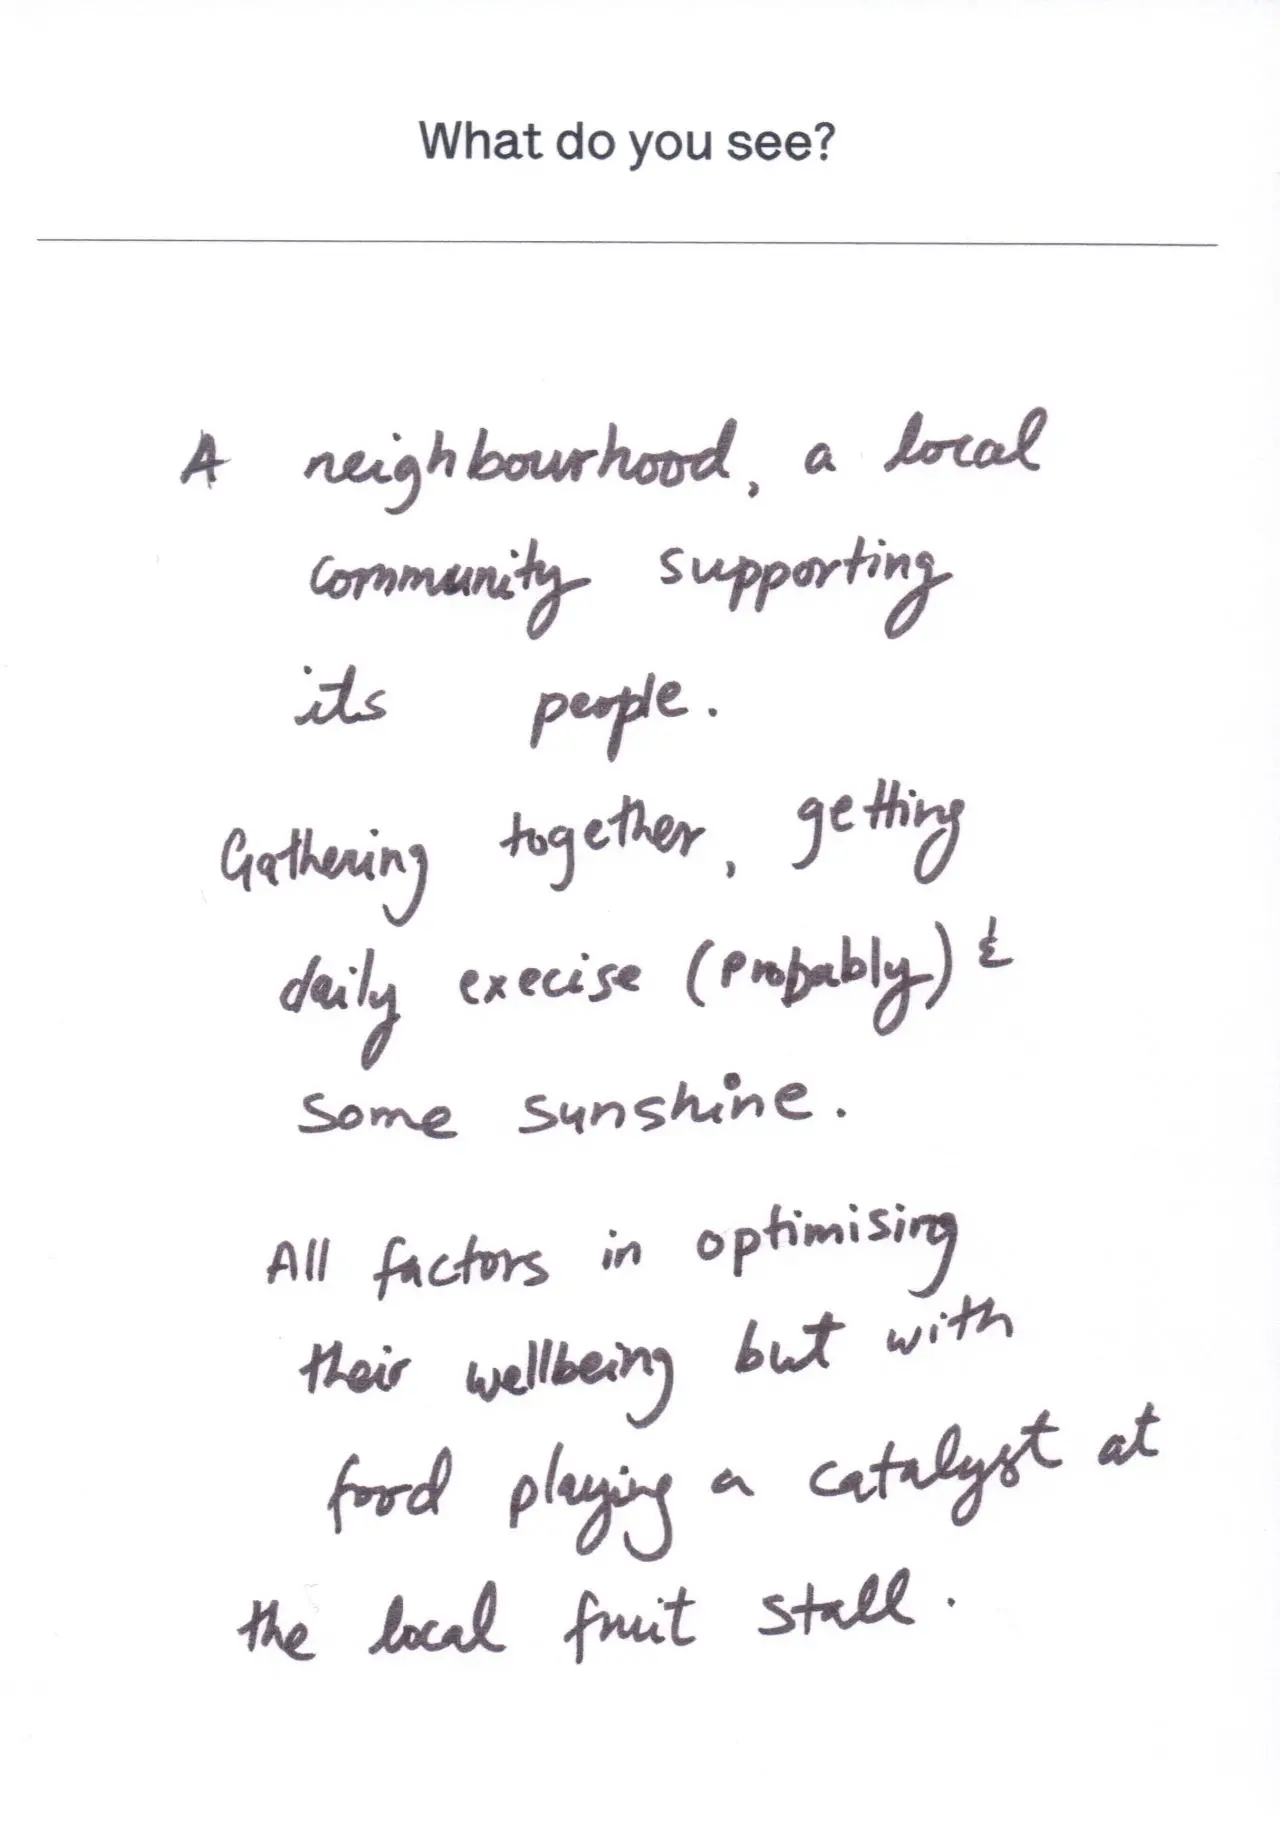 What do you see?
A neighbourhood, a local
community supporting
its people.
Gathering together, getting
daily execise (probably) &
some sunshine.
All factors in optimising
their wellbeing but with
food playing a catalyst at
the local fruit stall.